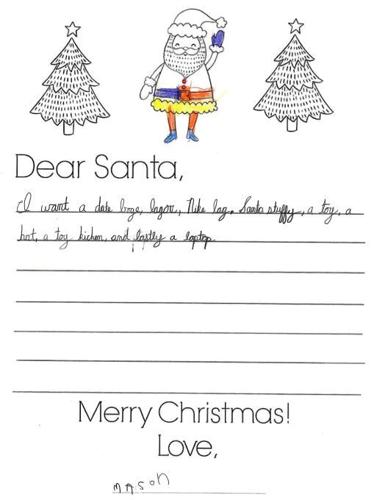 Dear Santa,
I want a date Nike bag, Santa stuffy, a toy, a
hat, a toy kichen, and lastly a laptop.
Merry Christmas!
Love,
mason